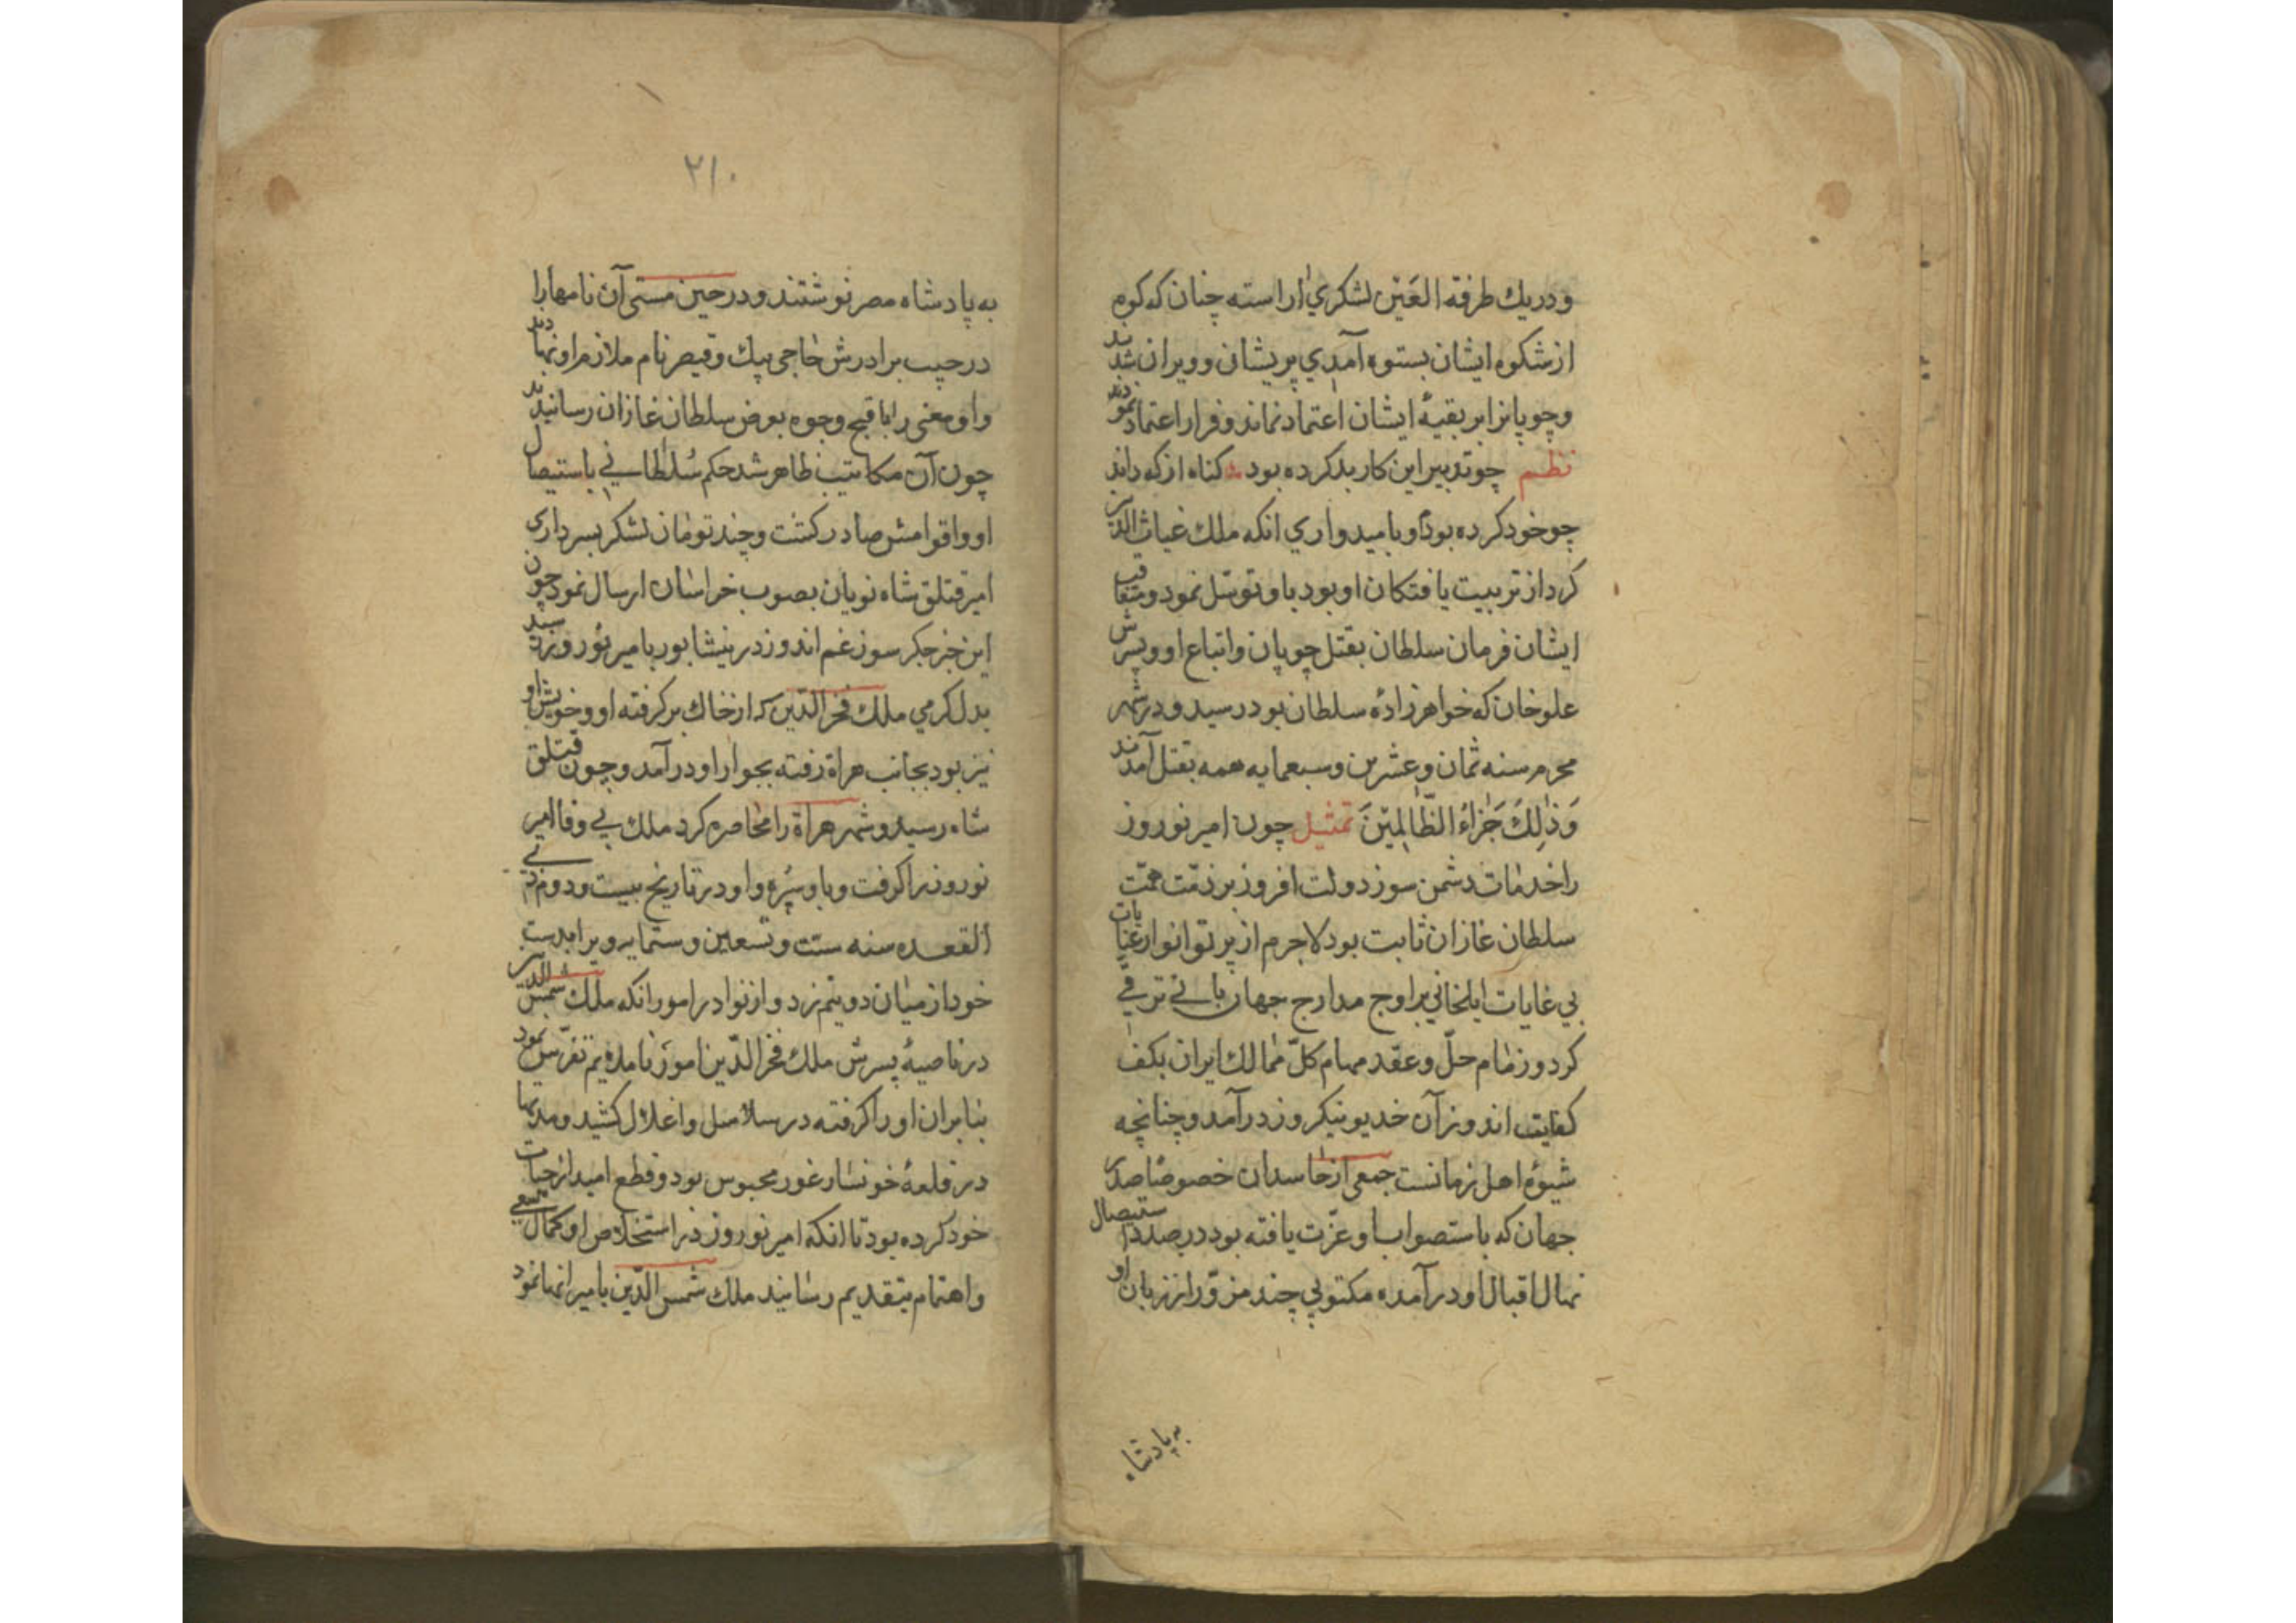 ودر يك طرفة العَيْن لشكري اراسته چنان كه كوه
از شكوه ايشان بستوه آمدي پريشانى وويران شدند
وچوپانرا بر بقيهٔ ايشان اعتماد نماند وفرار اعتماد نمودند
نظم چو تدبير اين كار بد كرده بود كناه از كه داند
چو خود كرده بود و باميدواري انكه ملك غياث الدين
كرد از تربيت يافتكان او بود باو توسّل نمود ومتعاقب
ايشان فرمان سلطان بقتل چوپان واتباع او وپسرش
علوخان كه خواهرزادهٔ سلطان بود رسيد ودر شهر
محرم سنه ثمان وعشرين وسبعمايه همه بقتل آمدند
وَذٰلِكَ جَزٰاءُ الظّالِمِيْنَ تمثيل چون امير نوروز
را خدمات دشمن سوز دولت افروز بر ذمّت همّت
سلطان غازان ثابت بود لاجرم از پرتو انوار عنايات
بي غايات ايلخاني بر اوج مدارج جهان بانے ترقے
كرد وزمام حلّ وعقد مهام كلّ ممالك ايران بكف
كفايت اندوز آن خديو نيكروز درآمد وچنانچه
شيوهٔ اهل زمانست جمعي از حاسدان خصوصًا صدر
جهان كه باستصواب او عزّت يافته بود درصدد استيصال
نهال اقبال او درآمده مكتوبي چند مزوّر از زبان او
به پادشاه
٢١٠
به پادشاه مصر نوشتند ودر حين مستى آن نامهارا
در جيب برادرش حاجى بيك وقيصر نام ملازم او نهادند
واو معنى را باقبح وجوه بعرض سلطان غازان رسانيدند
چون آن مكاتيب ظاهر شد حكم سُلطانے باستيصال
او واقوامش صادر كشت وچند تومان لشكر بسردارى
امير قتلق شاه نويان بصوب خراسان ارسال نمود چون
اين خبر جكر سوز غم اندوز در نيشابور بامير نوروز رسيد
بدل كرمي ملك فخر الدّين كه از خاك بركرفته او وخويش او
نيز بود بجانب هراة رفته بجوار او درآمد وچون قتلق
شاه رسيد وشهر هراة را محاصره كرد ملك بي وفا امير
نوروز را كرفت وباو سپُره واو در تاريخ بيست ودوم ذي
القعده سنه ستت وتسعين وستمايه ويرا بدست
خود از ميان دو نيم زد واز نوادر امور انكه ملك شمس الدين
در ناصيهٔ پسرش ملك فخر الدّين امور ناملايم تفرّس نمود
بنابران او را كرفته در سلاسل واغلال كشيد ومدتها
در قلعهٔ خونسار غور محبوس بود وقطع اميد از حيات
خود كرده بود تا انكه امير نوروز در استخلاص او كمال سعى
واهتمام بتقديم رسانيد ملك شمس الدّين بامير انها نمود